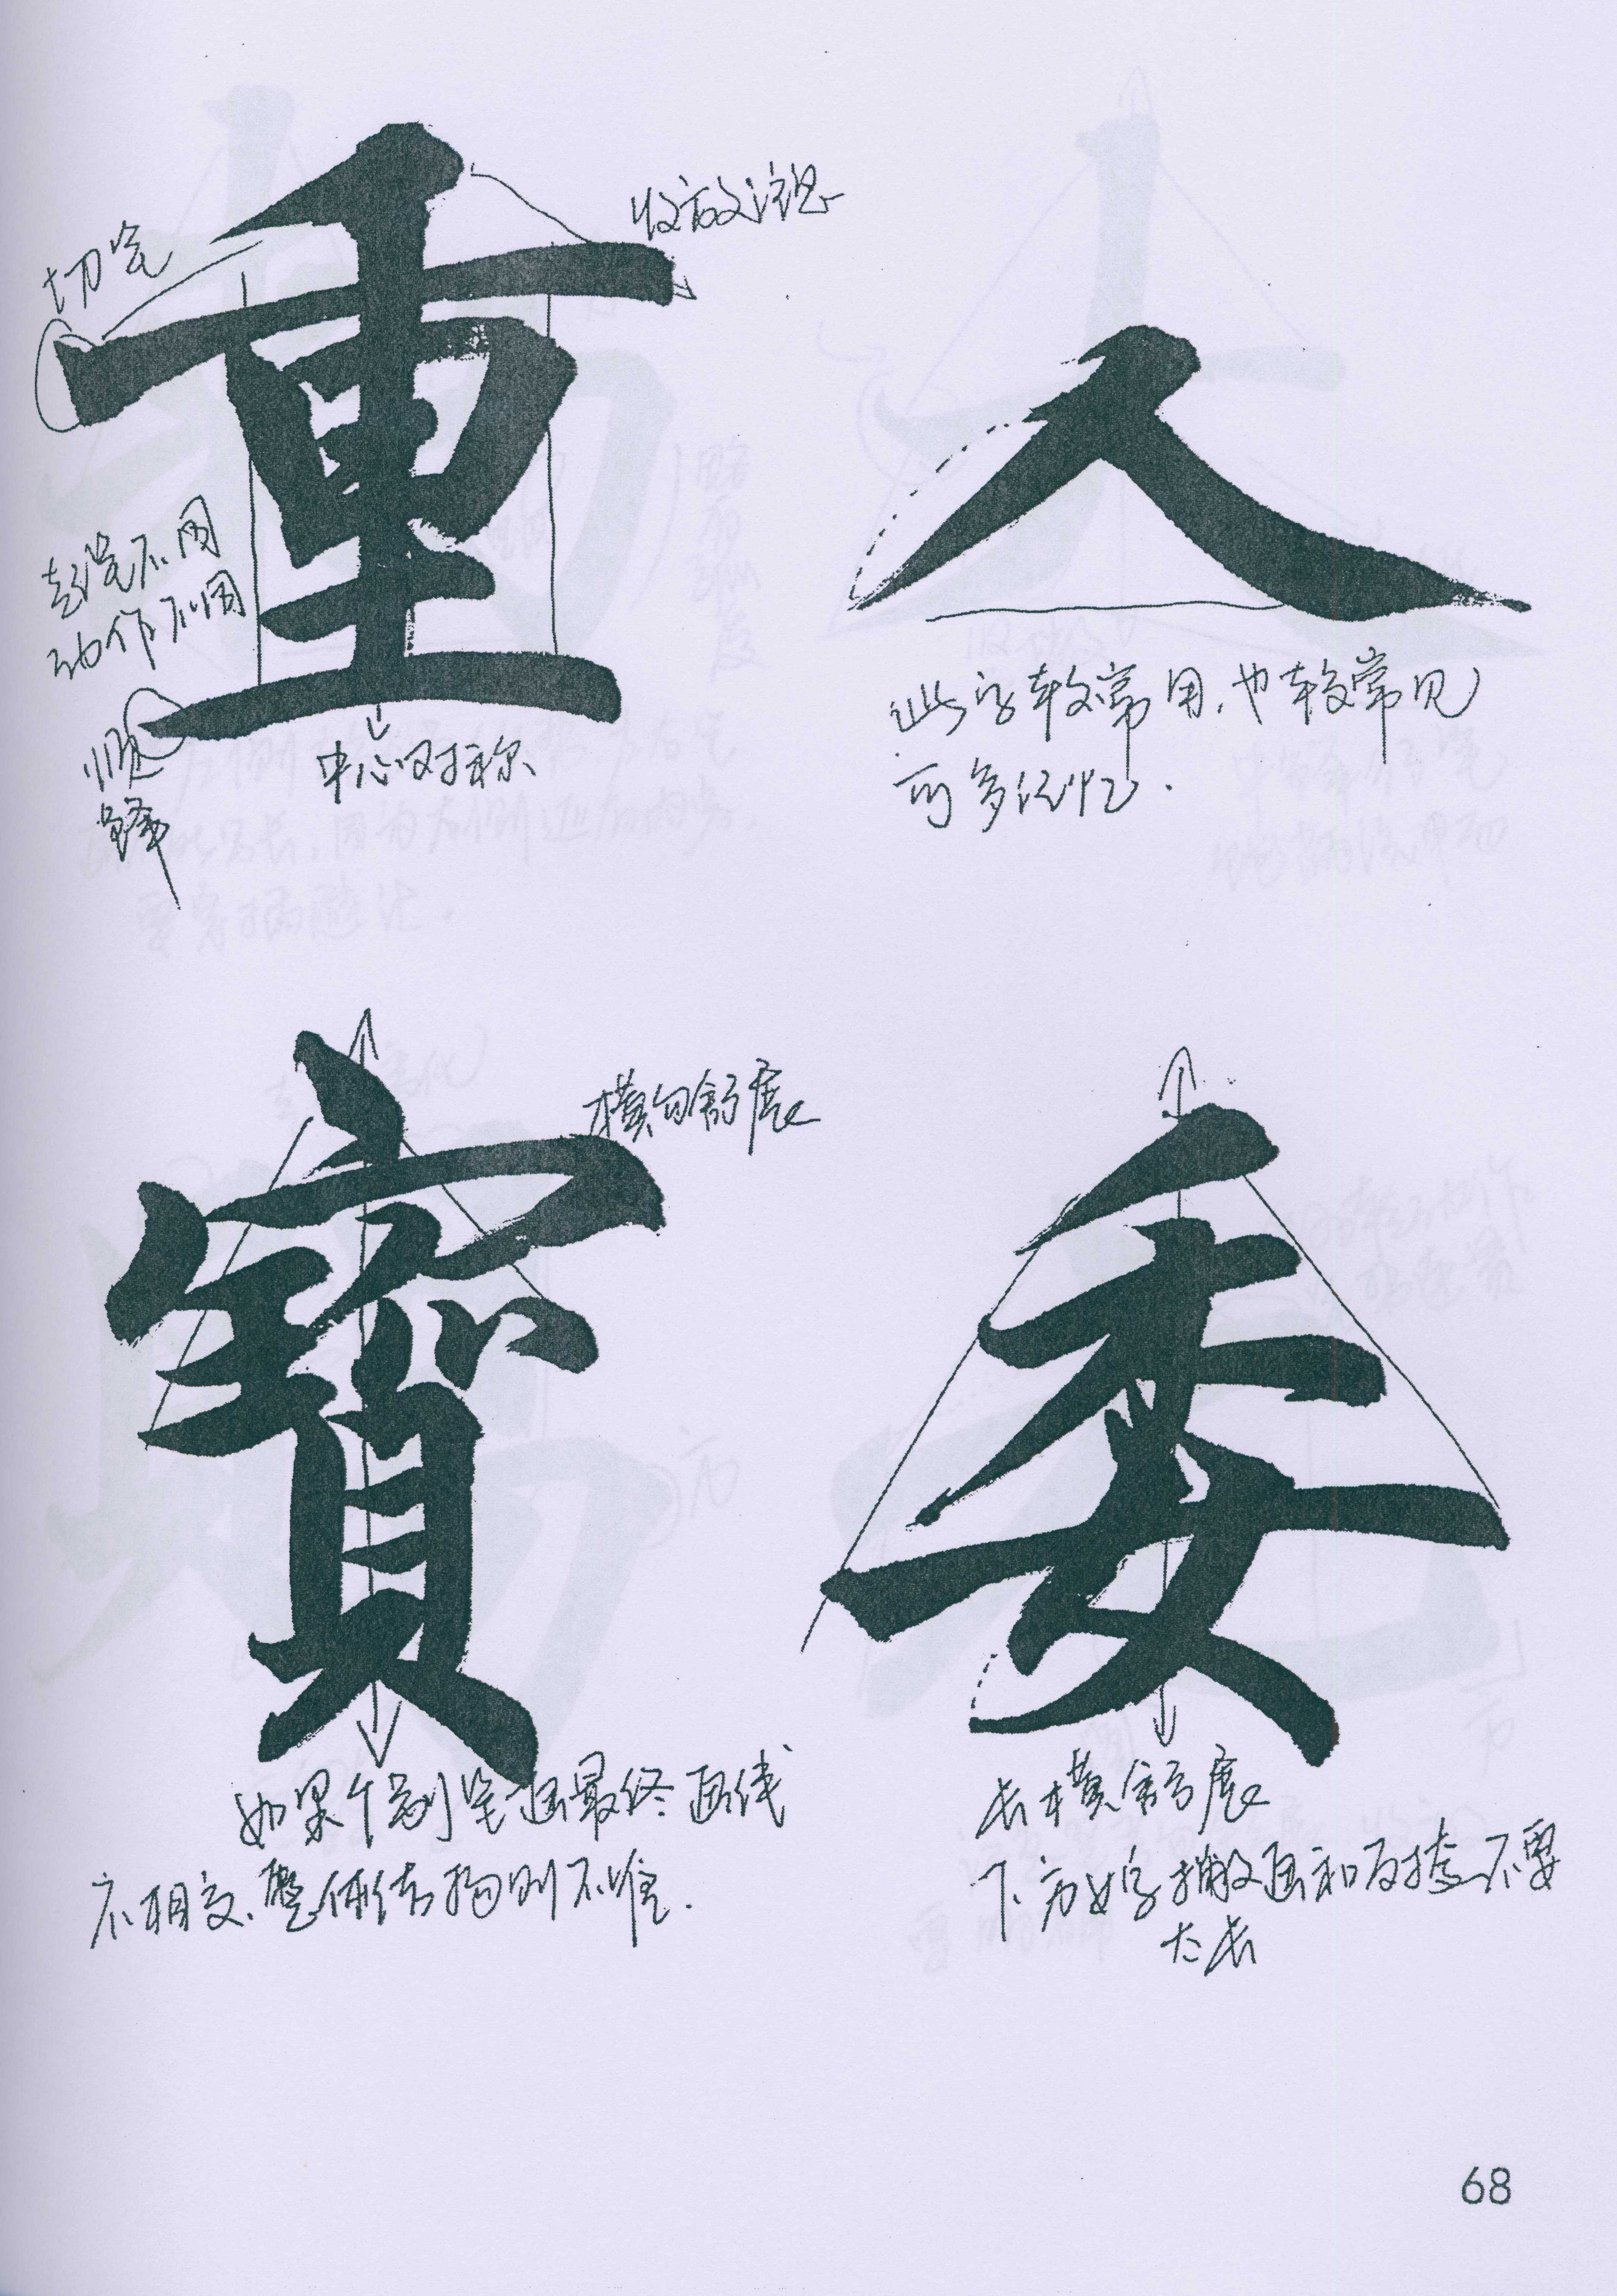 重
切笔
收放注意
起笔不同
动作不同
顺
锋
中心对称
人
此字较常用,也较常见
可多记忆.
寶
横勾舒展
如果个别笔画最终画线
不相交,整体结构则不准.
委
长横舒展
下方女字撇画和反捺不要
太长
68